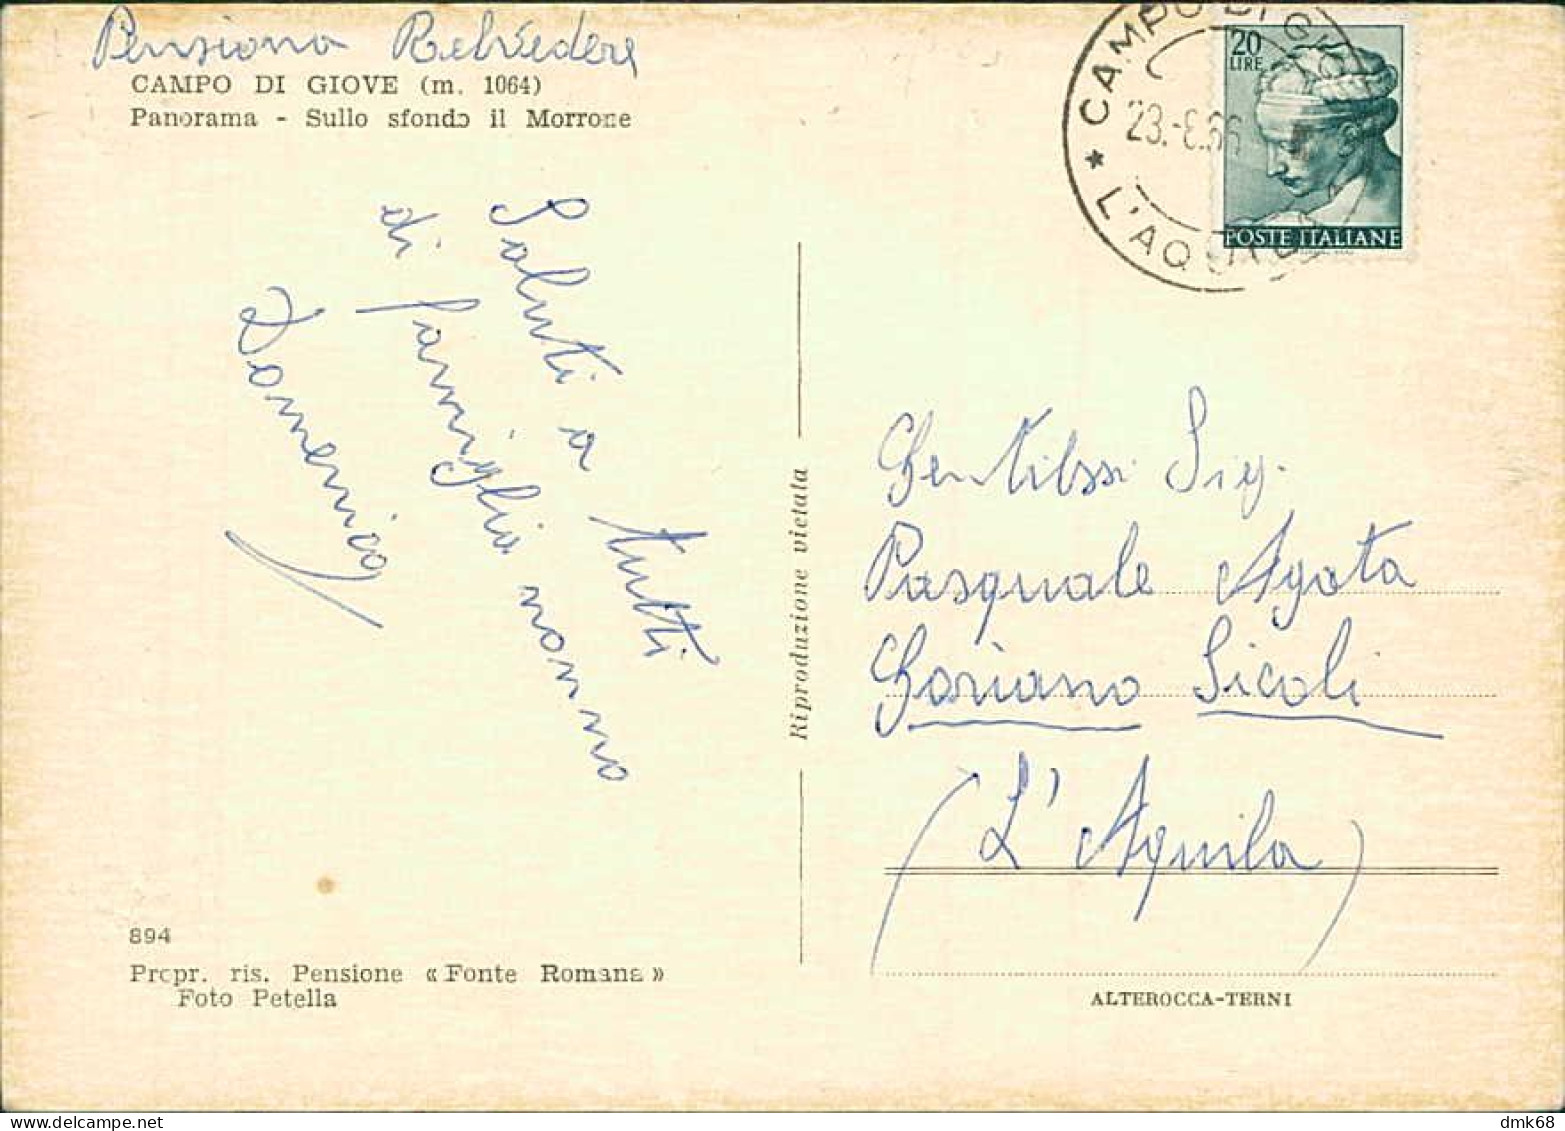 Pensiona Belvedere
CAMPO DI GIOVE (m. 1064)
Panorama - Sullo sfondo il Morrone
Saluti a tutti
di famiglia nonno
Domenico
894
Propr. ris. Pensione «Fonte Romana»
Foto Petella
Riproduzione vietata
CAMPO DI GIOVE
23.-8.66
* L'AQUILA
20
LIRE
POSTE ITALIANE
Gentilssi Sig.
Pasquale Agata
Goriano Sicoli
(L'Aquila)
ALTEROCCA-TERNI
dmk68